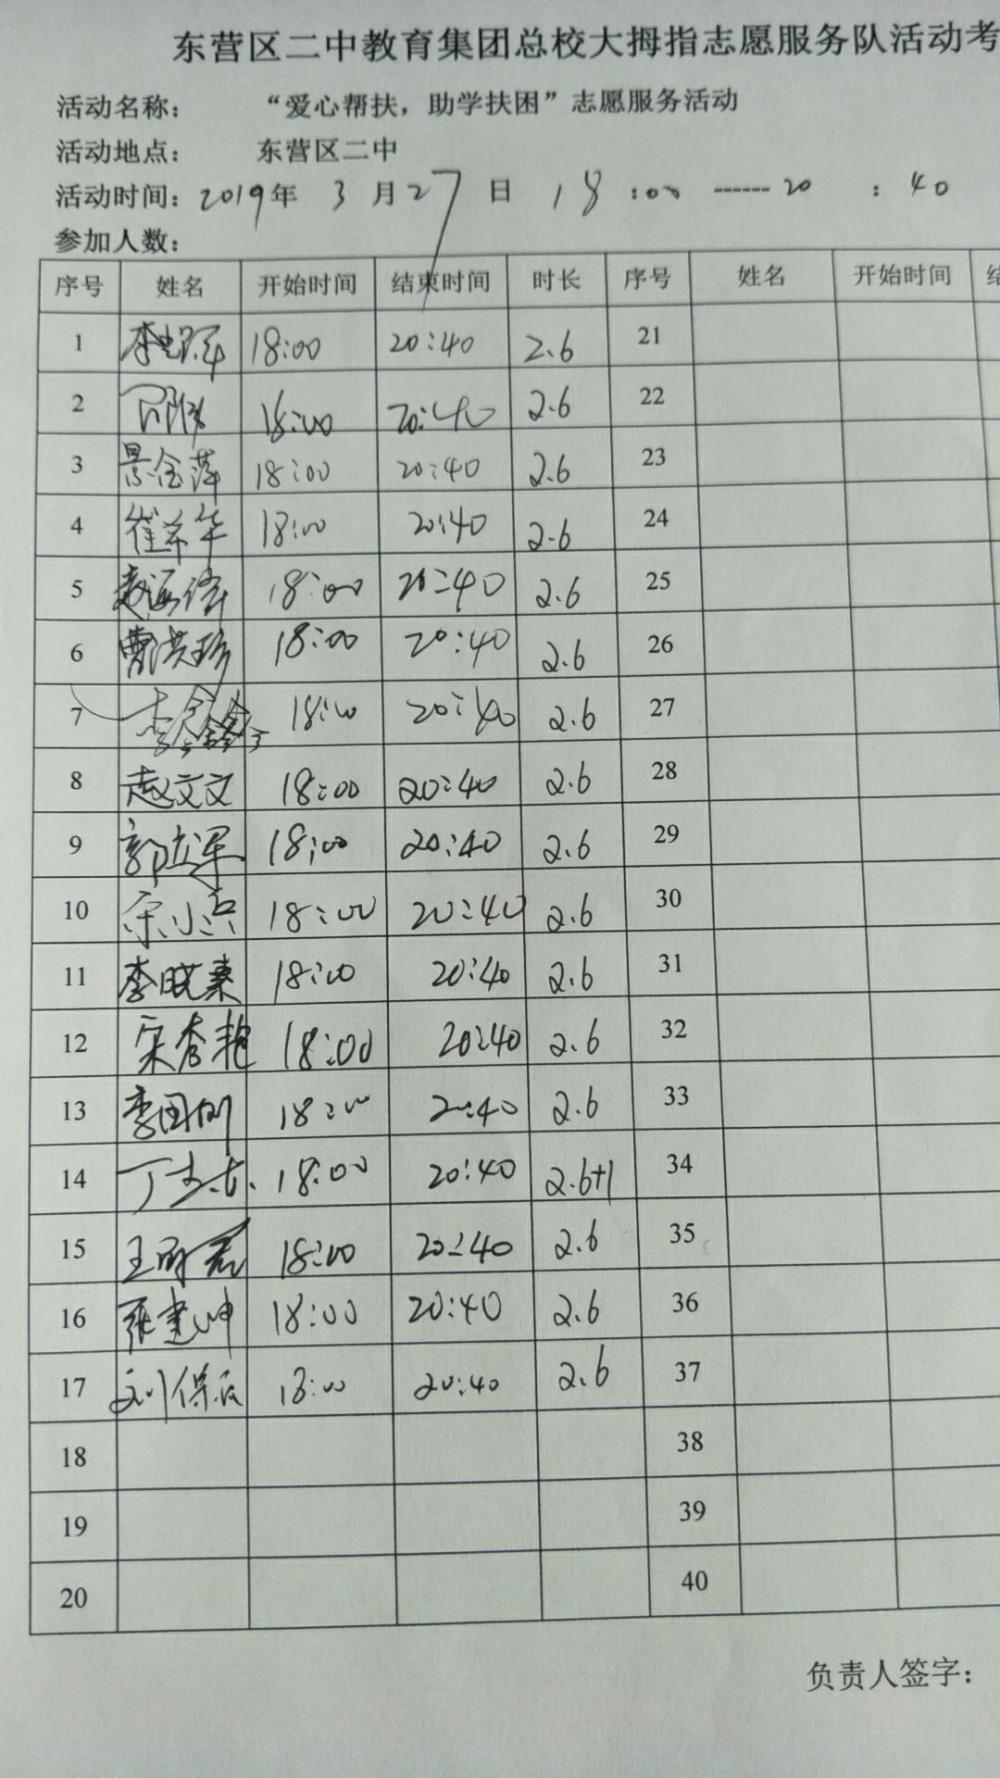 东营区二中教育集团总校大拇指志愿服务队活动考
活动名称： “爱心帮扶，助学扶困”志愿服务活动
活动地点： 东营区二中
活动时间：2019年 3 月 27 日 18 :00 ------ 20 : 40
参加人数：
序号 姓名 开始时间 结束时间 时长 序号 姓名 开始时间 结
1 18:00 20:40 2.6 21
2 18:00 20:40 2.6 22
3 景金萍 18:00 20:40 2.6 23
4 崔希华 18:00 20:40 2.6 24
5 18:00 20:40 2.6 25
6 曹洪珍 18:00 20:40 2.6 26
7 18:00 20:40 2.6 27
8 赵文文 18:00 20:40 2.6 28
9 郭立军 18:00 20:40 2.6 29
10 宋小兵 18:00 20:40 2.6 30
11 18:00 20:40 2.6 31
12 宋秀艳 18:00 20:40 2.6 32
13 李国刚 18:00 20:40 2.6 33
14 18:00 20:40 2.6+1 34
15 18:00 20:40 2.6 35
16 张建坤 18:00 20:40 2.6 36
17 18:00 20:40 2.6 37
18 38
19 39
20 40
负责人签字：